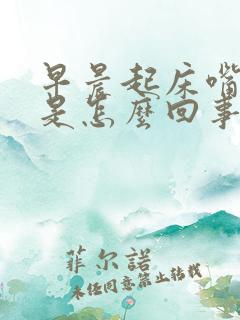 早晨起床嘴
是怎麼回事
菲尔諾
未经同意禁止转载